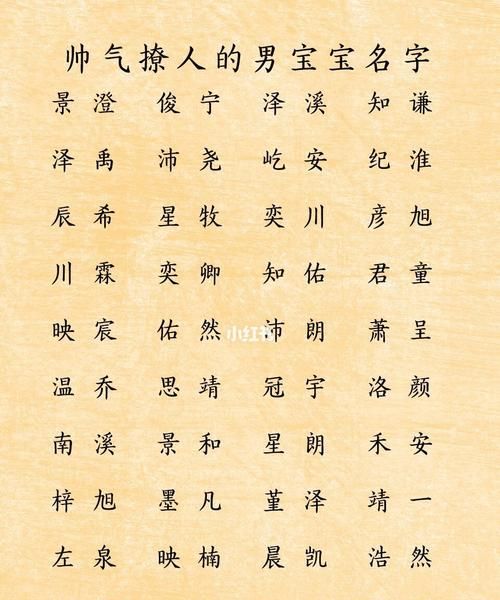 帅气撩人的男宝宝名字
景澄 俊宁 泽溪 知谦
泽禹 沛尧 屹安 纪淮
辰希 星牧 奕川 彦旭
川霖 奕卿 知佑 君童
映宸 佑然 沛朗 萧呈
小红书
温乔 思靖 冠宇 洛颜
南溪 景和 星朗 禾安
梓旭 墨凡 堇泽 靖一
左泉 映楠 晨凯 浩然